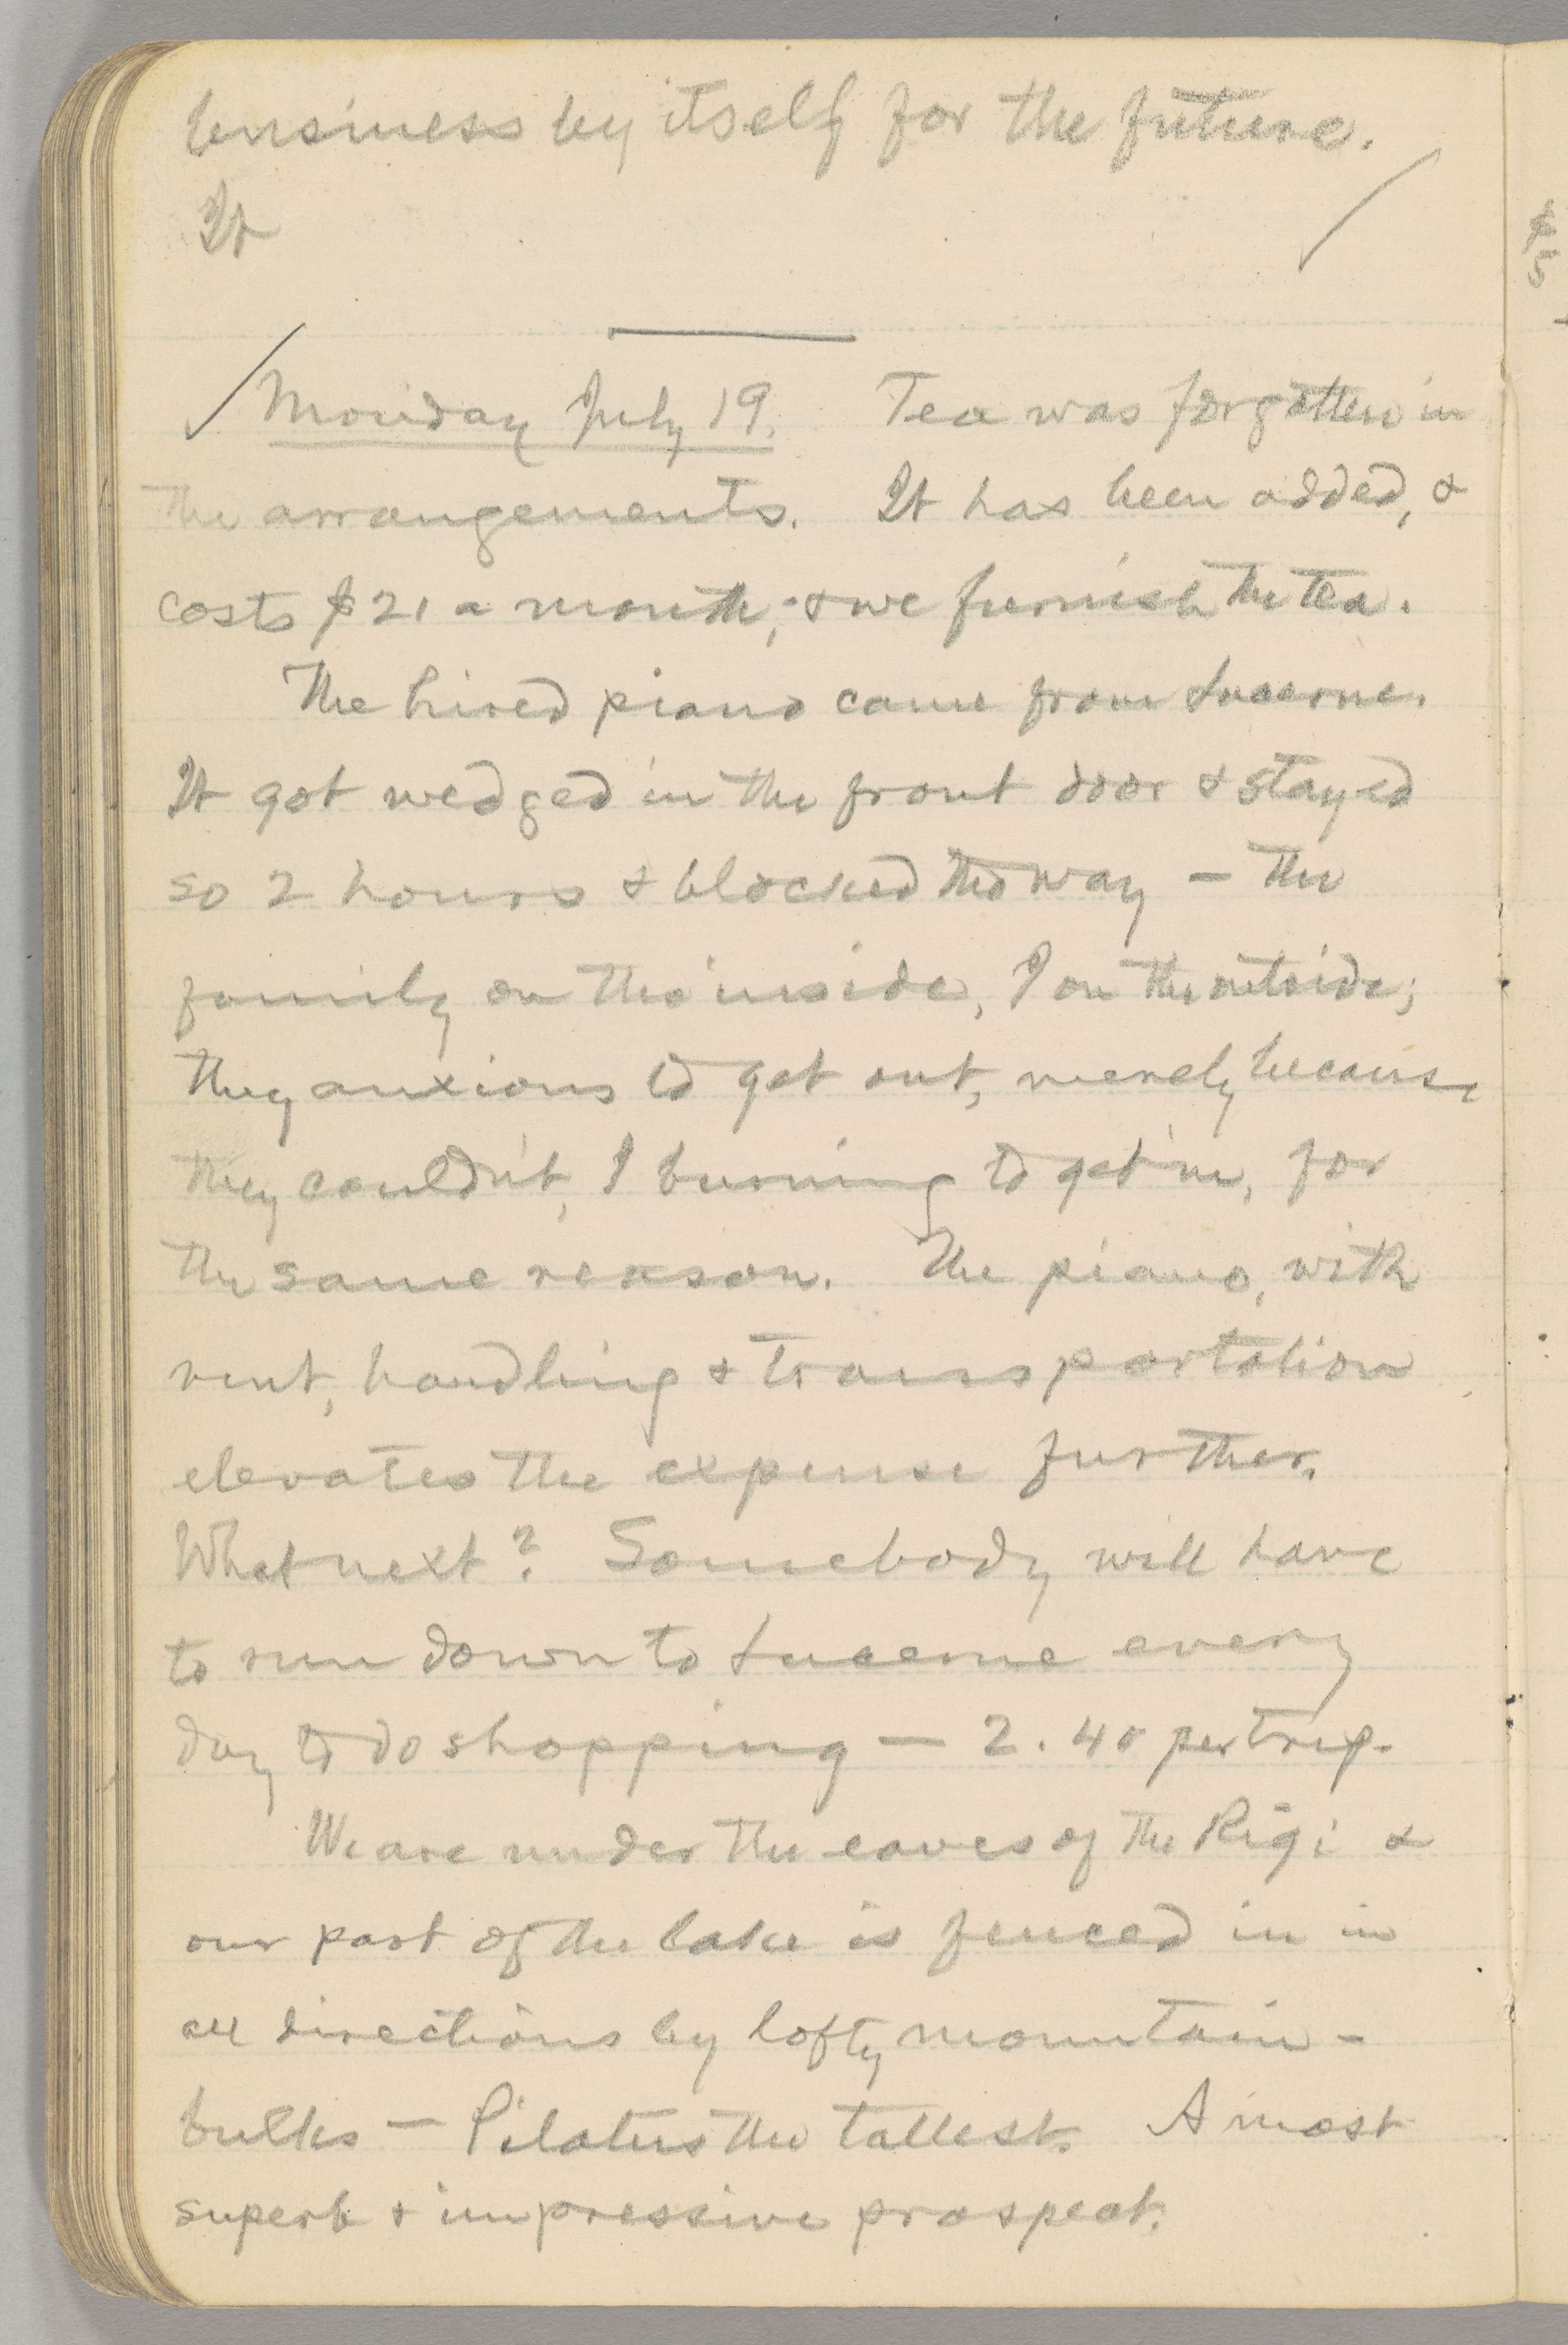 business by itself for the future.
It
Monday July 19. Tea was forgotten in
the arrangements. It has been added, &
costs $21 a month; & we furnish the tea.
The hired piano came from Lucerne.
It got wedged in the front door & stayed
so 2 hours & blocked the way — the
family on the inside, I on the outside;
they anxious to get out, merely because
they couldn't, I burning to get in, for
the same reason. The piano, with
rent, handling & transportation
elevates the expense further.
What next? Somebody will have
to run down to Lucerne every
day to do shopping — 2.40 per trip.
We are under the eaves of the Rigi &
our part of the lake is fenced in in
all directions by lofty mountain-
bulks — Pilatus the tallest. A most
superb & impressive prospect.
$
5